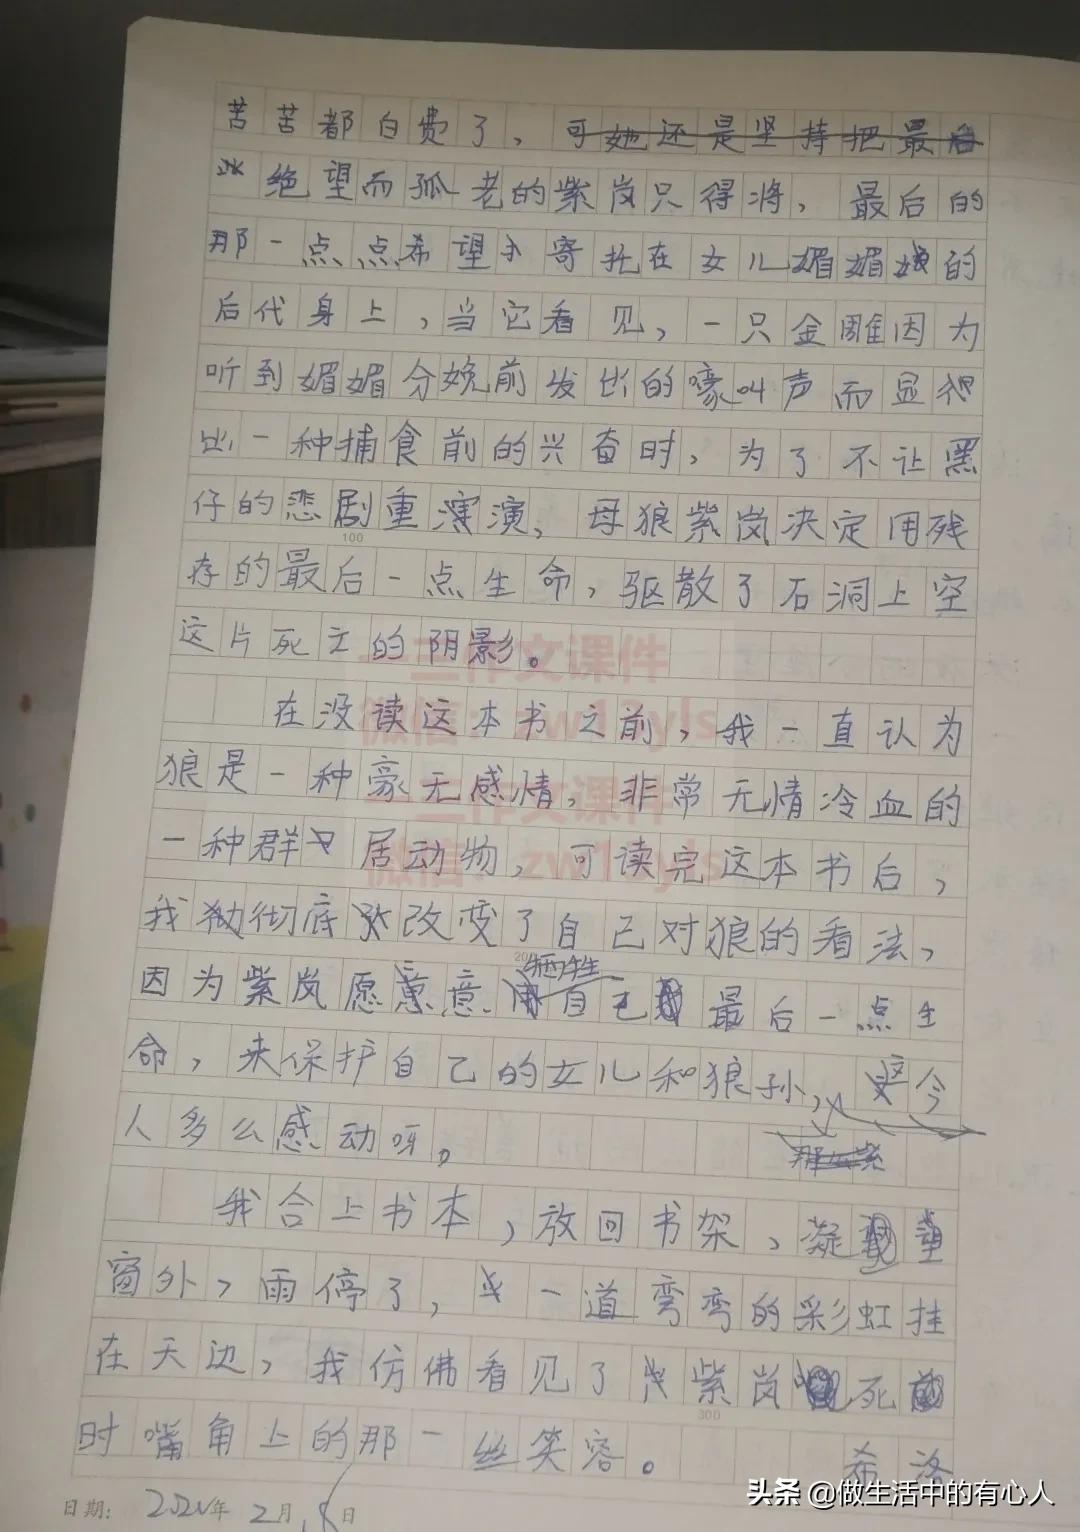 苦苦都白费了，可她还是坚持把最后
绝望而孤老的紫岚只得将，最后的
那一点点希望寄托在女儿媚媚的
后代身上，当它看见，一只金雕因为
听到媚媚分娩前发出的嚎叫声而显
出一种捕食前的兴奋时，为了不让黑
仔的悲剧重演，母狼紫岚决定用残
存的最后一点生命，驱散了石洞上空
这片死亡的阴影。
在没读这本书之前，我一直认为
狼是一种豪无感情，非常无情冷血的
一种群居动物，可读完这本书后，
我彻底改变了自己对狼的看法，
因为紫岚愿意牺牲自己最后一点生
命，来保护自己的女儿和狼孙，这令
人多么感动呀。
那紫
我合上书本，放回书架，凝望
窗外，雨停了，一道弯弯的彩虹挂
在天边，我仿佛看见了紫岚死
时嘴角上的那一丝笑容。
希洛
100
200
300
三作文课件
微信：zw13yls
三作文课件
微信：zw13yls
日期：2020年2月8日
头条 @做生活中的有心人